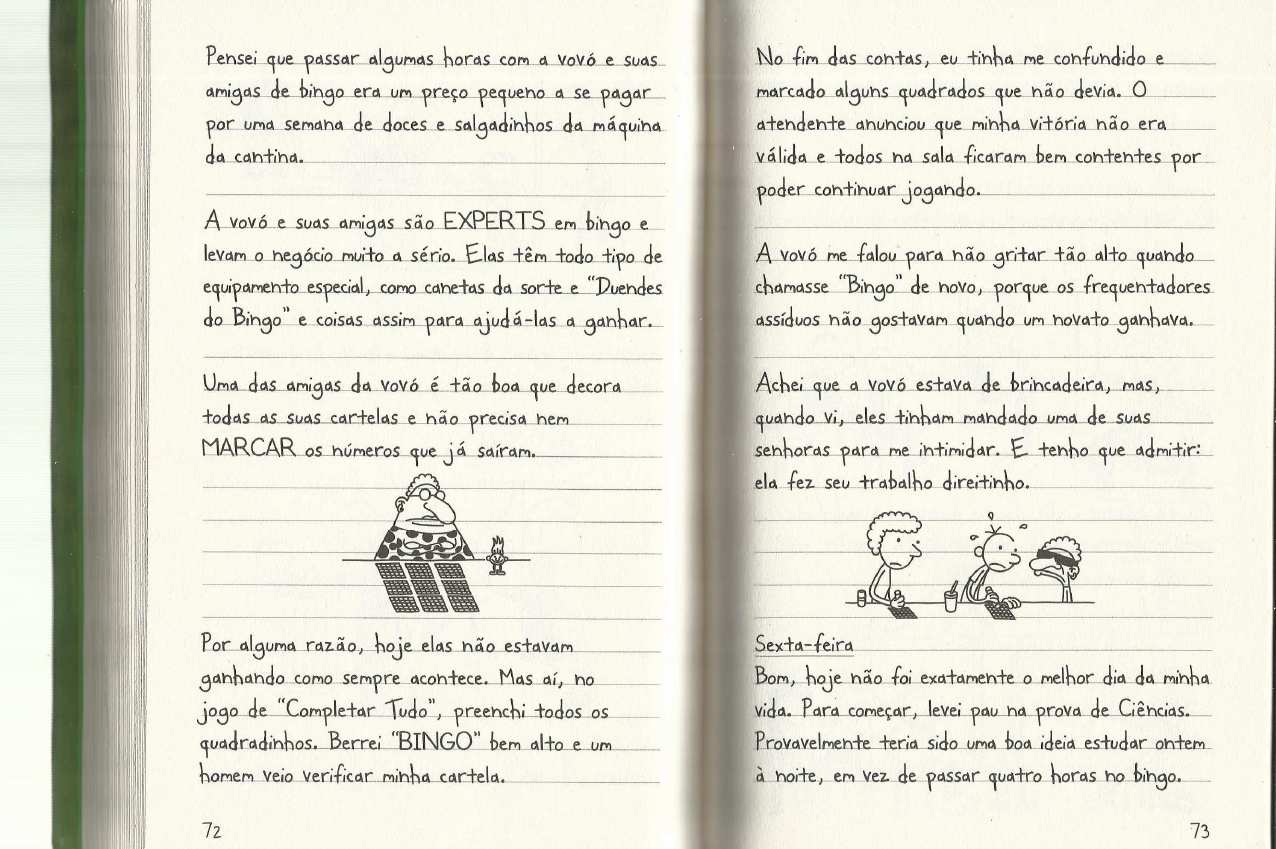 Pensei que passar algumas horas com a vovó e suas
amigas de bingo era um preço pequeno a se pagar
por uma semana de doces e salgadinhos da máquina
da cantina.
A vovó e suas amigas são EXPERTS em bingo e
levam o negócio muito a sério. Elas têm todo tipo de
equipamento especial, como canetas da sorte e "Duendes
do Bingo" e coisas assim para ajudá-las a ganhar.
Uma das amigas da vovó é tão boa que decora
todas as suas cartelas e não precisa nem
MARCAR os números que já saíram.
Por alguma razão, hoje elas não estavam
ganhando como sempre acontece. Mas aí, no
jogo de "Completar Tudo", preenchi todos os
quadradinhos. Berrei "BINGO" bem alto e um
homem veio verificar minha cartela.
72
No fim das contas, eu tinha me confundido e
marcado alguns quadrados que não devia. O
atendente anunciou que minha vitória não era
válida e todos na sala ficaram bem contentes por
poder continuar jogando.
A vovó me falou para não gritar tão alto quando
chamasse "Bingo" de novo, porque os frequentadores
assíduos não gostavam quando um novato ganhava.
Achei que a vovó estava de brincadeira, mas,
quando vi, eles tinham mandado uma de suas
senhoras para me intimidar. E tenho que admitir:
ela fez seu trabalho direitinho.
Sexta-feira
Bom, hoje não foi exatamente o melhor dia da minha
vida. Para começar, levei pau na prova de Ciências.
Provavelmente teria sido uma boa ideia estudar ontem
à noite, em vez de passar quatro horas no bingo.
73